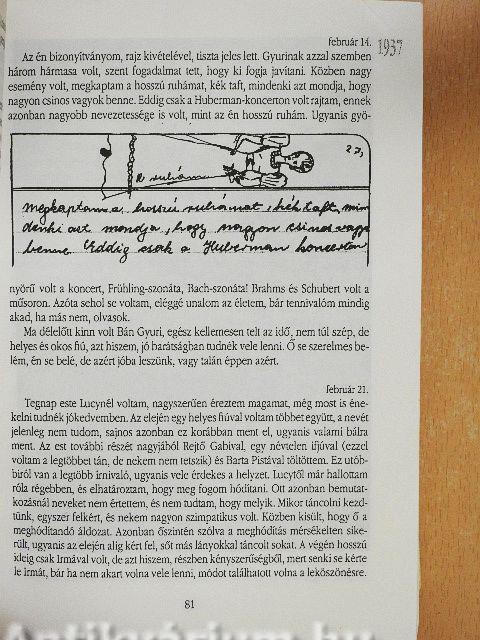 február 14.
1937
Az én bizonyítványom, rajz kivételével, tiszta jeles lett. Gyurinak azzal szemben
három hármasa volt, szent fogadalmat tett, hogy ki fogja javítani. Közben nagy
esemény volt, megkaptam a hosszú ruhámat, kék taft, mindenki azt mondja, hogy
nagyon csinos vagyok benne. Eddig csak a Huberman-koncerton volt rajtam, ennek
azonban nagyobb nevezetessége is volt, mint az én hosszú ruhám. Ugyanis gyö-
27,
A ruhám
megkaptam a hosszú ruhámat, kék taft, min
denki azt mondja, hogy nagyon csinos vagy
benne. Eddig csak a Huberman koncerton
nyörű volt a koncert, Frühling-szonáta, Bach-szonáta! Brahms és Schubert volt a
műsoron. Azóta sehol se voltam, eléggé unalom az életem, bár tennivalóm mindig
akad, ha más nem, olvasok.
Ma délelőtt kinn volt Bán Gyuri, egész kellemesen telt az idő, nem túl szép, de
helyes és okos fiú, azt hiszem, jó barátságban tudnék vele lenni. Ő se szerelmes be-
lém, én se belé, de azért jóba leszünk, vagy talán éppen azért.
február 21.
Tegnap este Lucynél voltam, nagyszerűen éreztem magamat, még most is éne-
kelni tudnék jókedvemben. Az elején egy helyes fiúval voltam többet együtt, a nevét
jelenleg nem tudom, sajnos azonban ez korábban ment el, ugyanis valami bálra
ment. Az est további részét nagyjából Rejtő Gabival, egy névtelen ifjúval (ezzel
voltam a legtöbbet tán, de nekem nem tetszik) és Barta Pistával töltöttem. Ez utób-
biról van a legtöbb írnivaló, ugyanis vele érdekes a helyzet. Lucytől már hallottam
róla régebben, és elhatároztam, hogy meg fogom hódítani. Ott azonban bemutat-
kozásnál neveket nem értettem, és nem tudtam, hogy melyik. Mikor táncolni kezd-
tünk, egyszer felkért, és nekem nagyon szimpatikus volt. Közben kisült, hogy ő a
meghódítandó áldozat. Azonban őszintén szólva a meghódítás mérsékelten sike-
rült, ugyanis az elején alig kért fel, sőt más lányokkal táncolt sokat. A végén hosszú
ideig csak Irmával volt, de azt hiszem, részben kényszerűségből, mert senki se kérte
le Irmát, bár ha nem akart volna vele lenni, módot találhatott volna a leköszönésre.
81
Antikvárium.hu